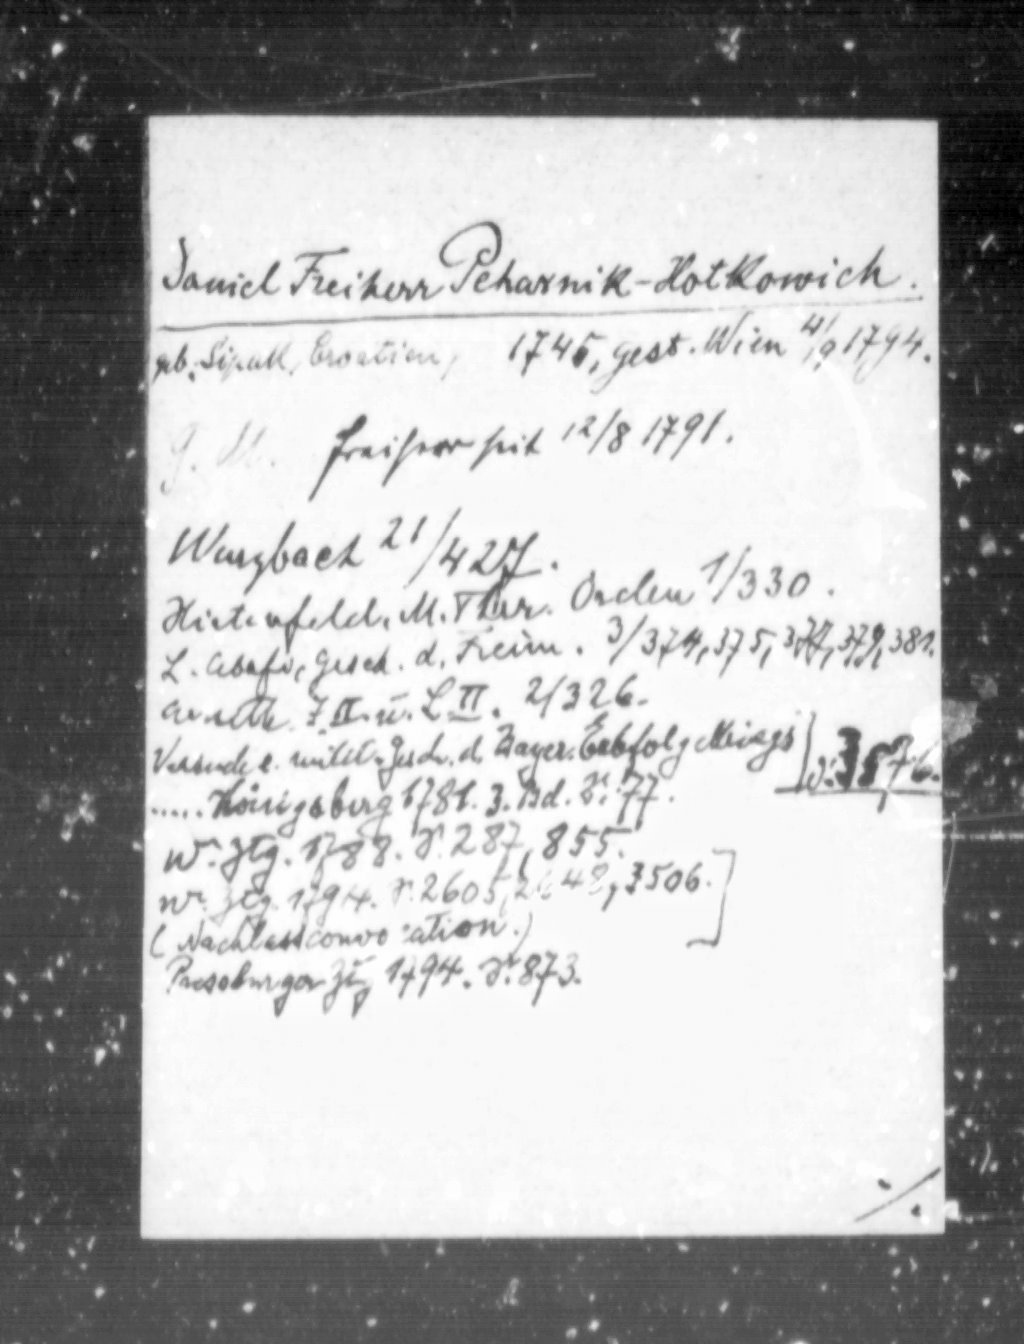 Daniel Freiherr Peharnik-Hotkowich.
gb. Sipak, Croatien, 1745, gest. Wien 4/9 1794.
G. M. Freiherr seit 12/8 1791.
Wurzbach 21/427.
Hirtenfeld, M. Ther. Orden 1/330.
L. Abafi, Gesch. d. Freim. 3/374, 375, 377, 379, 381.
Arneth J. II. u. L. II. 2/326.
Versuch e. milit. Gesch. d. Bayer. Erbfolgekriegs
..... Königsberg 1781. 3. Bd. S. 77.
W. Ztg. 1788. S. 287, 855.
W. Ztg. 1794. S. 2605, 2648, 3506.
(Nachlassconvocation.)
Pressburger Ztg 1794. S. 873.
./.